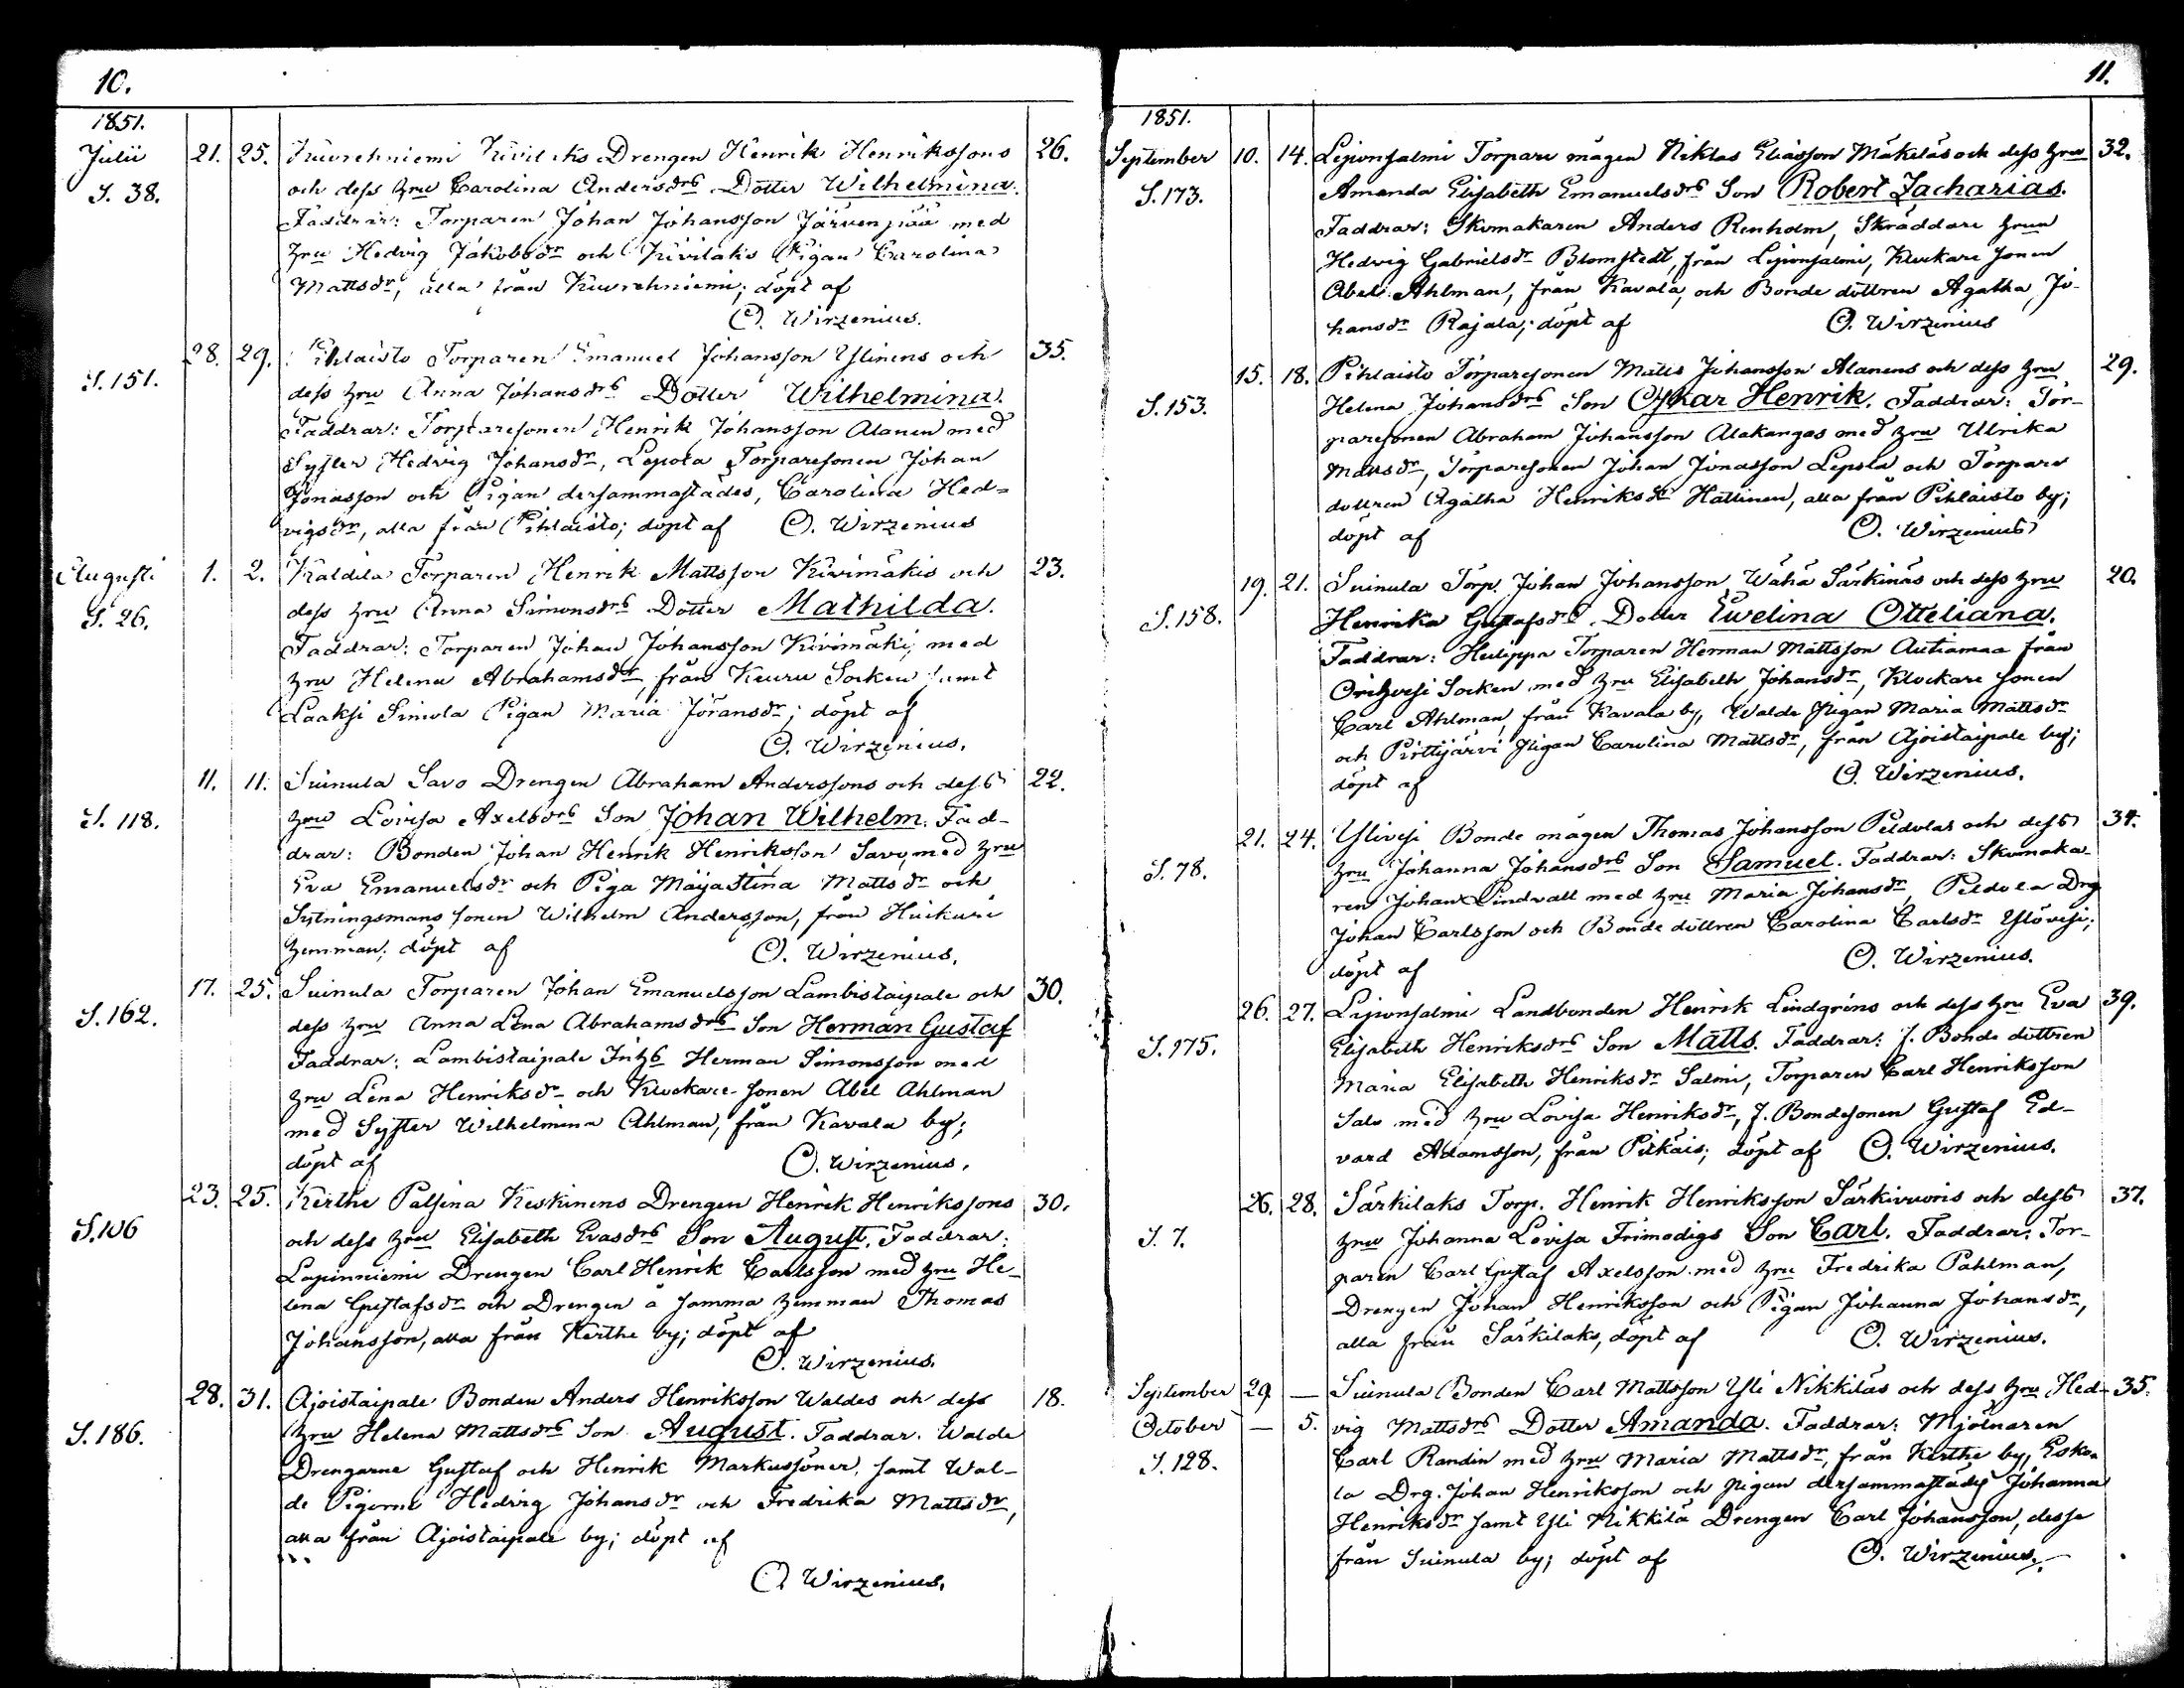 10.
1851.
Julii 21. 25. Kuorehniemi Kivilaks Drengen Henrik Henrikssons 26.
S. 38. och dess hru Carolina Andersdrs Dotter Wilhelmina.
Faddrar: Torparen Johan Johansson Järvenpää med
hru Hedvig Jakobsdr och Kivilaks Pigan Carolina
Mattsdr, alla från Kuorehniemi; döpt af
O. Wirzenius.
28. 29. Pihlaisto Torparen Emanuel Johansson Ylinens och 35.
S. 151. dess hru Anna Johansdrs Dotter Wilhelmina.
Faddrar: Torparesonen Henrik Johansson Alanen med
Syster Hedvig Johansdr, Lepola Torparesonen Johan
Jonasson och Pigan dersammastädes, Carolina Hed=
vigsdr, alla från Pihlaisto; döpt af O. Wirzenius
Augusti 1. 2. Kaldila Torparen Henrik Mattsson Kivimäkis och 23.
S. 26. dess hru Anna Simonsdrs Dotter Mathilda.
Faddrar: Torparen Johan Johansson Kivimäki, med
hru Helena Abrahamsdr, från Keuru Socken samt
Laaksi Sinvola Pigan Maria Jöransdr; döpt af
O. Wirzenius.
11. 11. Suinula Savo Drengen Abraham Anderssons och dess 22.
S. 118. hru Lovisa Axelsdrs Son Johan Wilhelm. Fad-
drar: Bonden Johan Henrik Henriksson Savo, med hru
Eva Emanuelsdr och Piga Maija Stina Matts dr och
Sytningsmans sonen Wilhelm Andersson, från Huikuri
hemman; döpt af O. Wirzenius.
17. 25. Suinula Torparen Johan Emanuelsson Lambistaipale och 30.
S. 162. dess hru Anna Lena Abrahamsdrs Son Herman Gustaf
Faddrar: Lambistaipale Inhs Herman Simonsson med
hru Lena Henriksdr och Klockare-sonen Abel Ahlman
med Syster Wilhelmina Ahlman, från Kavala by;
döpt af O. Wirzenius.
23. 25. Kerthe Palsina Keskinens Drengen Henrik Henrikssons 30.
S. 106 och dess hru Elisabeth Evasdrs Son August. Faddrar:
Lapinniemi Drengen Carl Henrik Carlsson med hru He-
lena Gustafsdr och Drengen å samma hemman Thomas
Johansson, alla från Kerthe by; döpt af
O. Wirzenius.
28. 31. Ajoistaipale Bonden Anders Henriksson Waldes och dess 18.
S. 186. hru Helena Mattsdrs Son August. Faddrar: Walde
Drengarne Gustaf och Henrik Markussöner, samt Wal-
de Pigorne Hedvig Johansdr och Fredrika Mattsdr,
alla från Ajoistaipale by; döpt af
O. Wirzenius.
11.
1851.
September 10. 14. Lejonsalmi Torpare mågen Niklas Eliasson Mäkeläs och dess hru 32.
S. 173. Amanda Elisabeth Emanuelsdrs Son Robert Zacharias.
Faddrar: Skomakaren Anders Renholm, Skräddare hrun
Hedvig Gabrielsdr Blomstedt, från Lejonsalmi, Klockare sonen
Abel Ahlman, från Kavala, och Bonde dottren Agatha Jo-
hansdr Rajala; döpt af O. Wirzenius
15. 18. Pihlaisto Torparesonen Matts Johansson Alanens och dess hru 29.
S. 153. Helena Johansdrs Son Oskar Henrik. Faddrar: Tor-
paresonen Abraham Johansson Alakangas med hru Ulrika
Mansdr, Torparesonen Johan Jonasson Lepola och Torpare
dottren Agatha Henriksdr Hattinen, alla från Pihlaisto by;
döpt af O. Wirzenius
19. 21. Suinula Torp. Johan Johansson Wähä Särkinäs och dess hru 20.
S. 158. Henrika Gustafsdrs Dotter Ewelina Otteliana.
Faddrar: Heilippa Torparen Herman Mattsson Autiamaa från
Orihvesi Socken med hru Elisabeth Johansdr, Klockare sonen
Carl Ahlman, från Kavala by, Walde Pigan Maria Mattsdr
och Pirttijärvi Pigan Carolina Mattsdr, från Ajoistaipale by;
döpt af O. Wirzenius.
21. 24. Ylivesi Bonde mågen Thomas Johansson Peldolas och dess 34.
S. 78. hru Johanna Johansdrs Son Samuel. Faddrar: Skomaka-
ren Johan Lindvall med hru Maria Johansdr, Peldola Drg
Johan Carlsson och Bonde dottren Carolina Carlsdr Ylövesi;
döpt af O. Wirzenius.
26. 27. Lejonsalmi Landbonden Henrik Lindgrens och dess hru Eva 39.
S. 175. Elisabeth Henriksdrs Son Matts. Faddrar: J. Bonde dottren
Maria Elisabeth Henriksdr Salmi, Torparen Carl Henriksson
Salo med hru Lovisa Henriksdr, J. Bondesonen Gustaf Ed-
vard Adamsson, från Pitkäis; döpt af O. Wirzenius.
26. 28. Särkilaks Torp. Henrik Henriksson Särkivuoris och dess 37.
S. 7. hru Johanna Lovisa Frimodigs Son Carl. Faddrar: Tor-
paren Carl Gustaf Axelsson med hru Fredrika Pahlman,
Drengen Johan Henriksson och Pigan Johanna Johansdr,
alla från Särkilaks, döpt af O. Wirzenius.
September 29 — Suinula Bonden Carl Mattsson Yli Nikkiläs och dess hru Hed- 35.
October — 5. vig Mattsdrs Dotter Amanda. Faddrar: Mjölnaren
S. 128. Carl Randin med hru Maria Mattsdr, från Kerthe by, Esko-
la Drg. Johan Henriksson och Pigan dersammastädes Johanna
Henriksdr samt Yli Nikkilä Drengen Carl Johansson, desse
från Suinula by; döpt af O. Wirzenius.